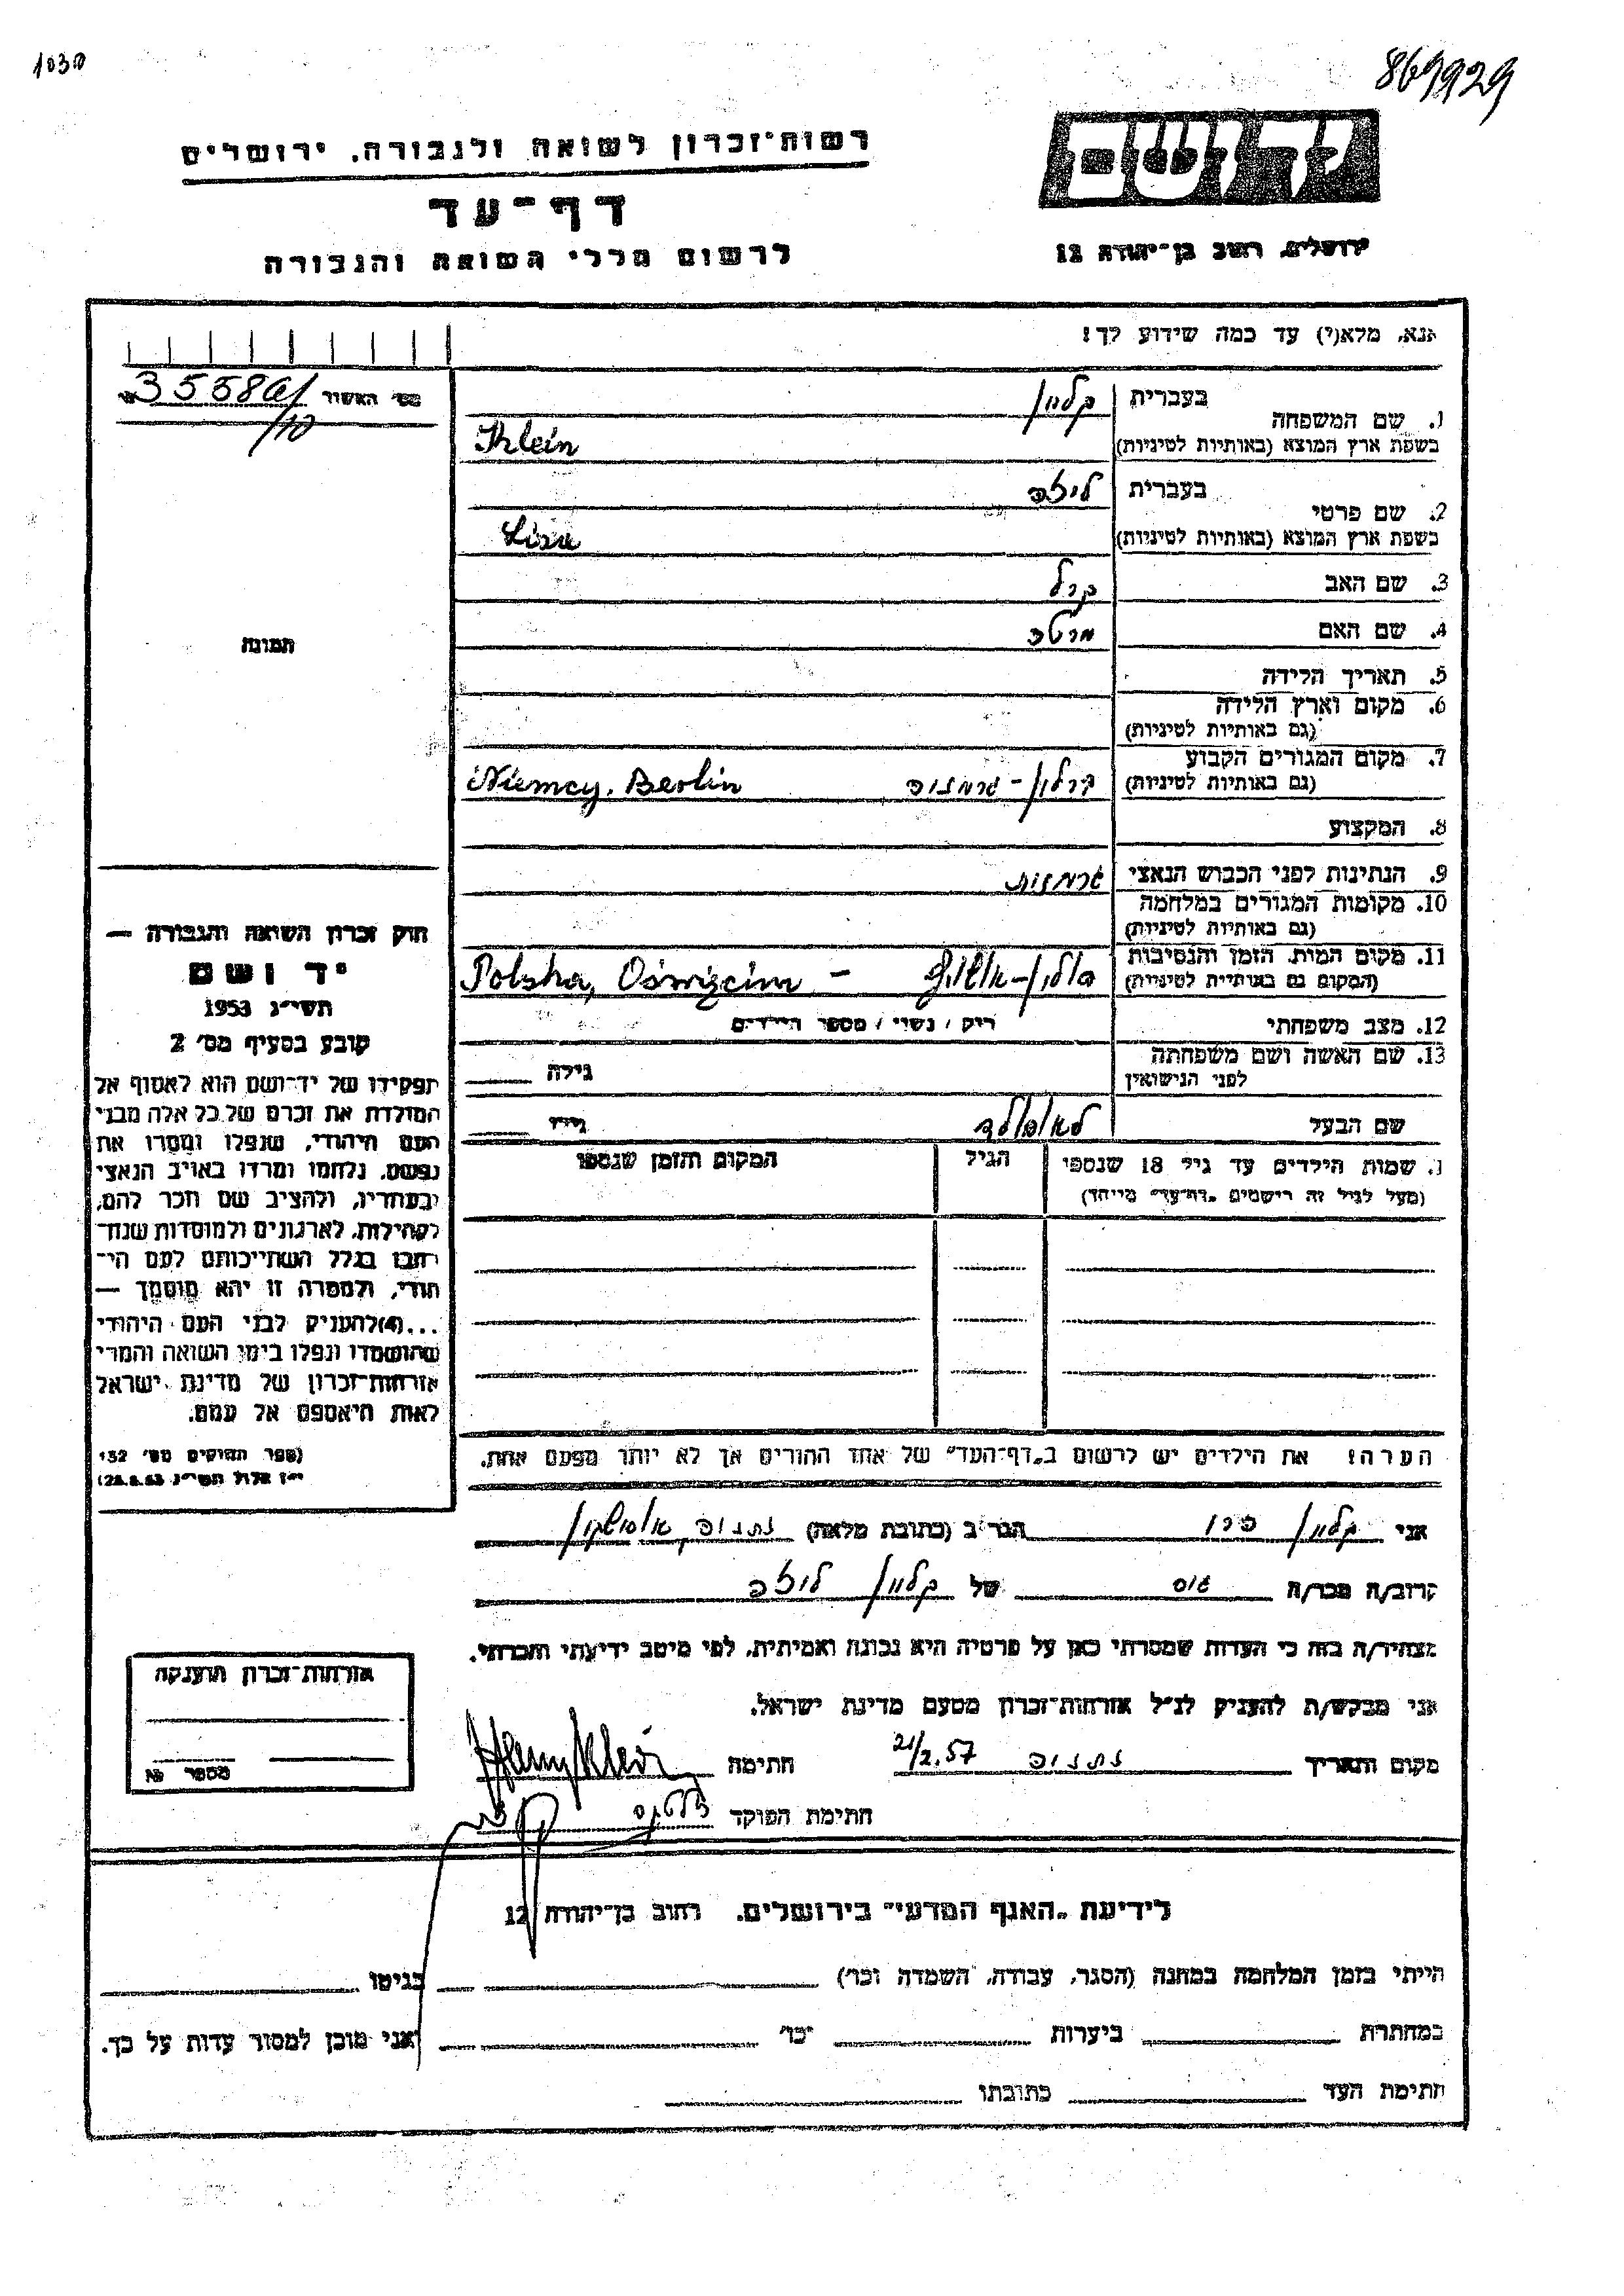 1030
869929
רשות־זכרון לשואה ולגבורה, ירושלים
יד ושם
דף־עד
לרשום חללי השואה והגבורה
ירושלים, רחוב בן־יהודה 12
אנא, מלא(י) עד כמה שידוע לך!
מס׳ האשור
35580/10
בעברית קליין
1. שם המשפחה
בשפת ארץ המוצא (באותיות לטיניות) Klein
בעברית ליזה
2. שם פרטי
בשפת ארץ המוצא (באותיות לטיניות)
3. שם האב קרל
4. שם האם מרטה
תמונה
5. תאריך הלידה
6. מקום וארץ הלידה
(גם באותיות לטיניות)
7. מקום המגורים הקבוע ברלין – גרמניה Niemcy, Berlin
(גם באותיות לטיניות)
8. המקצוע
9. הנתינות לפני הכבוש הנאצי גרמנית
10. מקומות המגורים במלחמה
(גם באותיות לטיניות)
11. מקום המות, הזמן והנסיבות פולין – Polska, Oświęcim –
(המקום גם באותיות לטיניות)
12. מצב משפחתי רווק / נשוי / מספר הילדים
13. שם האשה ושם משפחתה גילה
לפני הנישואין
שם הבעל לאופולד גילו
ו. שמות הילדים עד גיל 18 שנספו הגיל המקום והזמן שנספו
(מעל לגיל זה רושמים „דף־עד״ מיוחד)
הערה! את הילדים יש לרשום ב„דף־העד״ של אחד ההורים אך לא יותר מפעם אחת.
חוק זכרון השואה והגבורה —
יד ושם
תשי״ג 1953
קובע בסעיף מס׳ 2
תפקידו של יד־ושם הוא לאסוף אל
המולדת את זכרם של כל אלה מבני
העם היהודי, שנפלו ומסרו את
נפשם, נלחמו ומרדו באויב הנאצי
ובעוזריו, ולהציב שם וזכר להם,
לקהילות, לארגונים ולמוסדות שנח־
רבו בגלל השתייכותם לעם הי־
הודי, ולמטרה זו יהא מוסמך —
...(4)להעניק לבני העם היהודי
שהושמדו ונפלו בימי השואה והמרי
אזרחות־זכרון של מדינת ישראל
לאות היאספם אל עמם.
(ספר החוקים מס׳ 132
י״ז אלול תשי״ג 28.8.53)
אני קליין הגר ב (כתובת מלאה) נתניה
קרוב/ה מכר/ה גיס של קליין ליזה
מצהיר/ה בזה כי העדות שמסרתי כאן על פרטיה היא נכונה ואמיתית, לפי מיטב ידיעתי והכרתי.
אני מבקש/ת להעניק לנ״ל אזרחות־זכרון מטעם מדינת ישראל.
מקום ותאריך נתניה 21/2.57 חתימה
חתימת הפוקד
אזרחות־זכרון הוענקה
מספר №
לידיעת „האגף המדעי״ בירושלים. רחוב בן־יהודה 12
הייתי בזמן המלחמה במחנה (הסגר, עבודה, השמדה וכו׳) בגיטו
במחתרת ביערות וכו׳ ואני מוכן למסור עדות על כך.
חתימת העד כתובתו